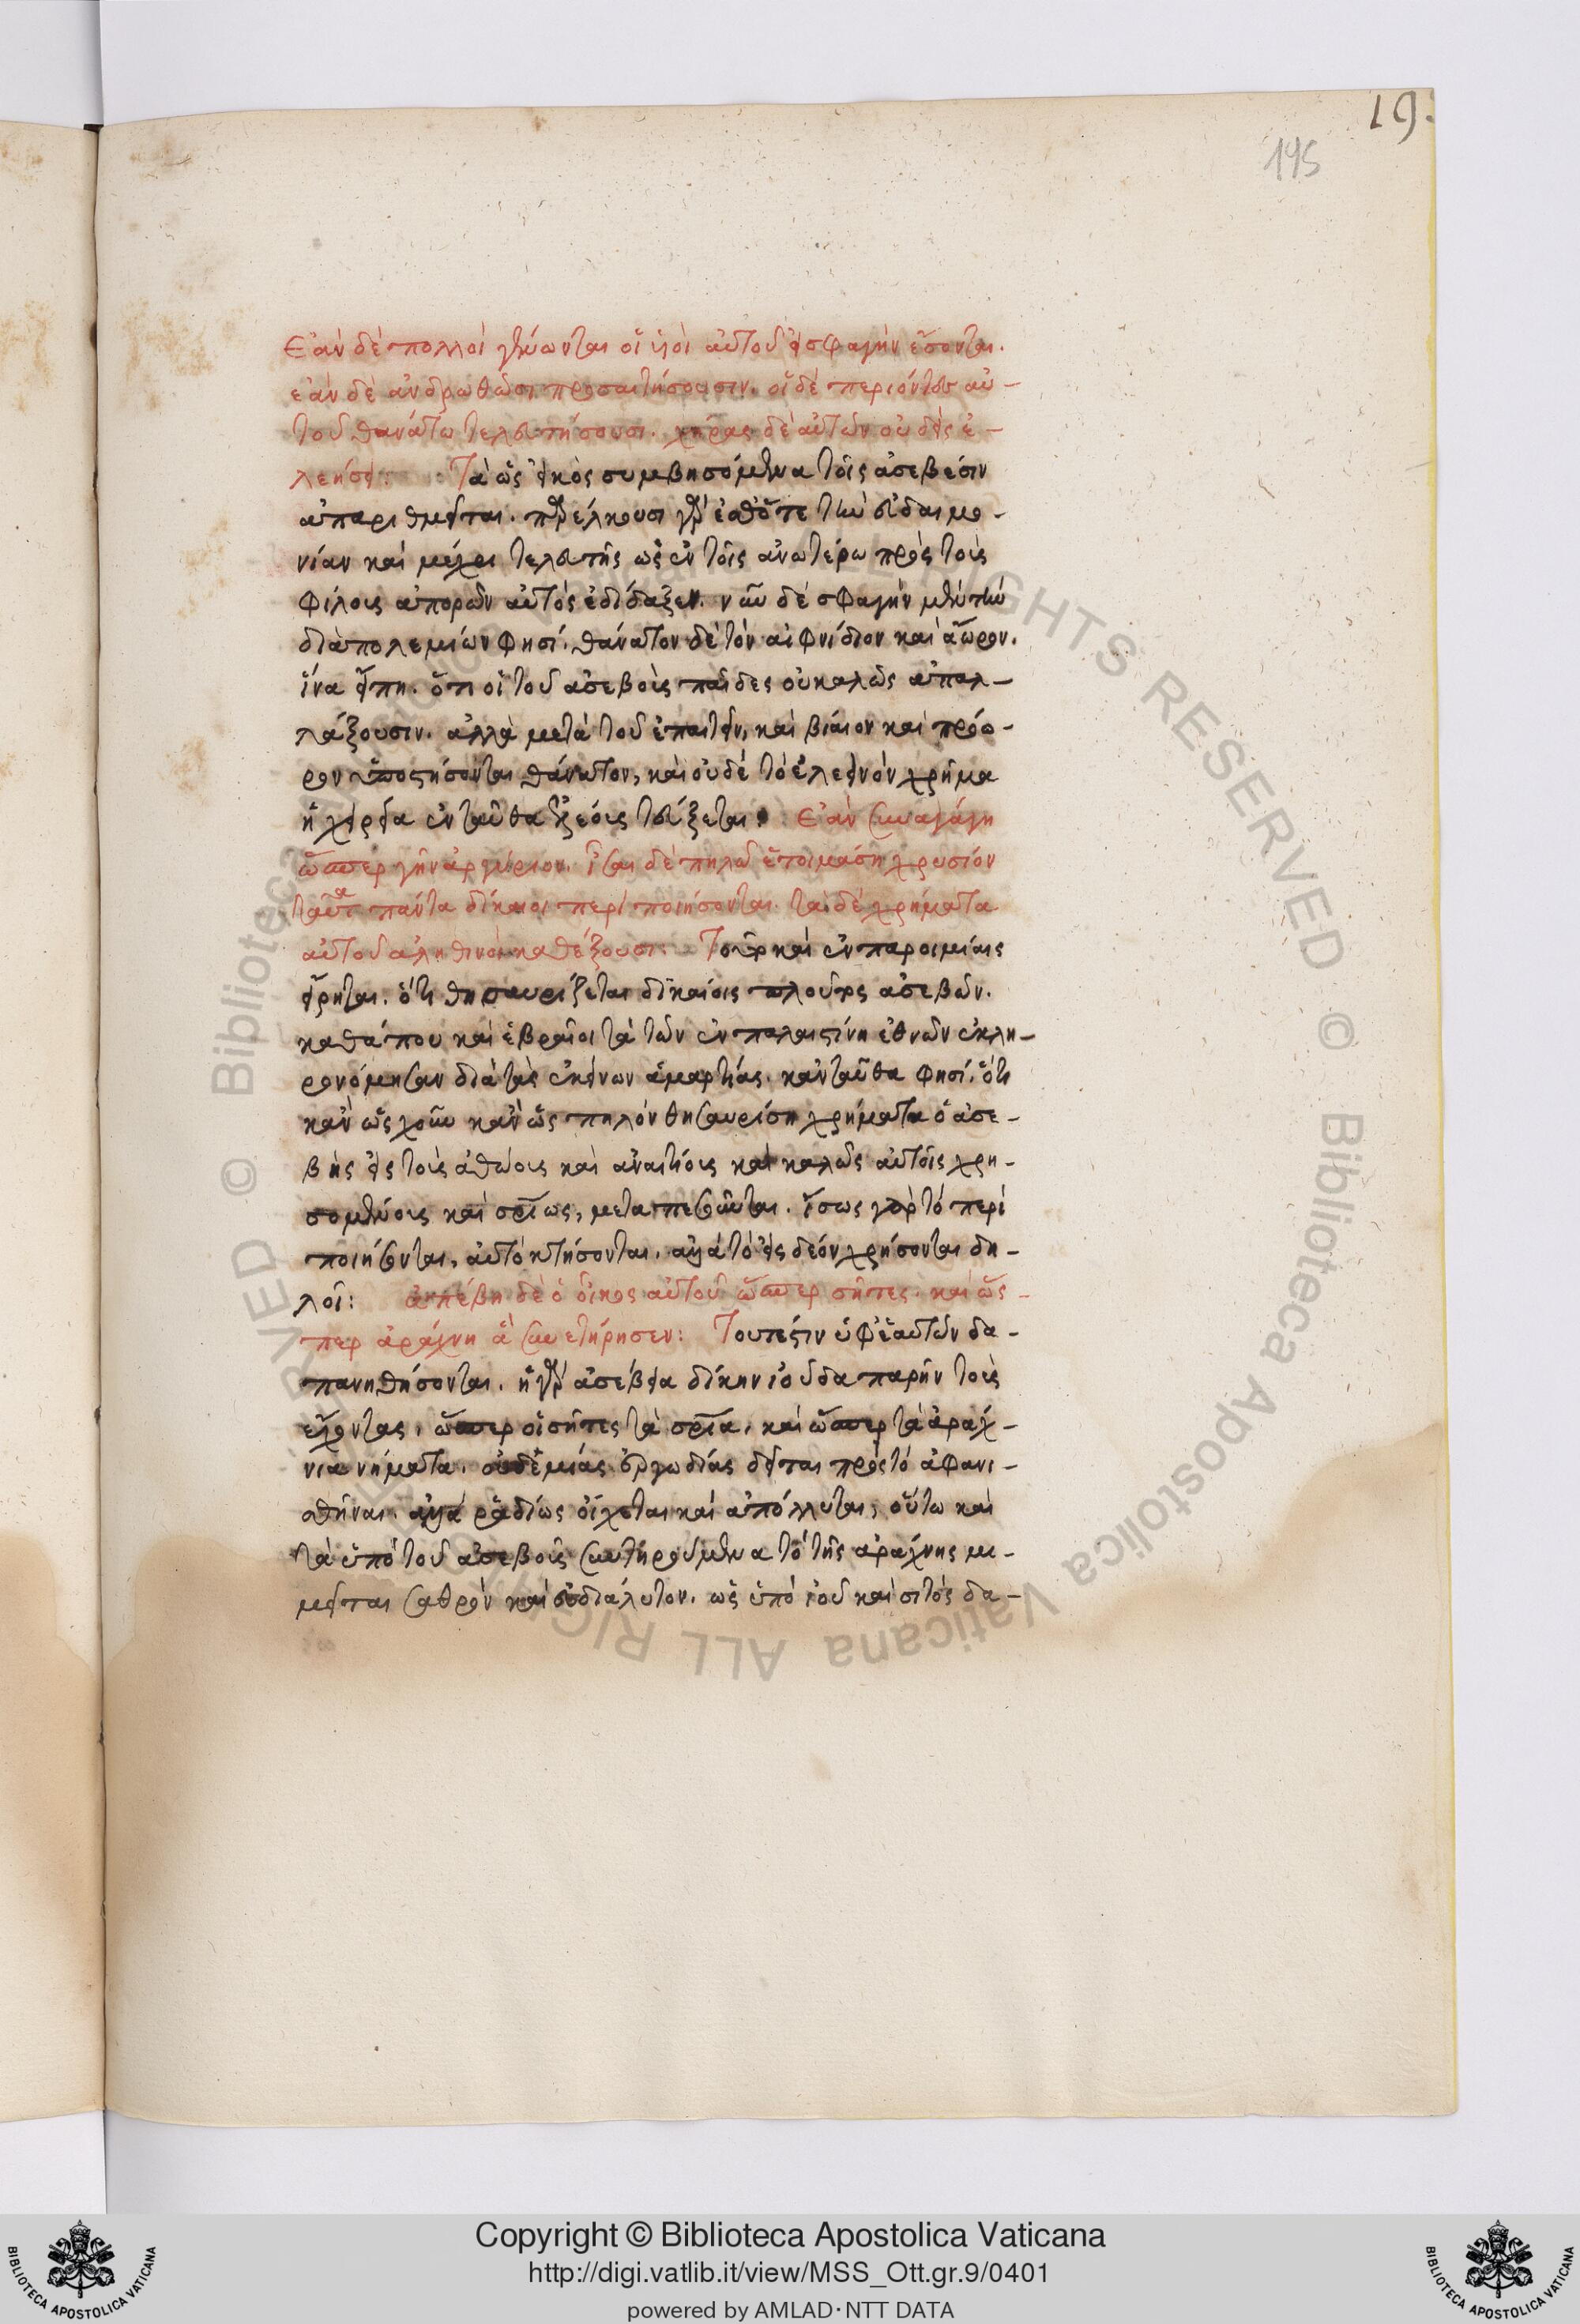 19.
195
Ἐὰν δὲ πολλοὶ γένωνται οἱ υἱοὶ αὐτοῦ εἰς σφαγὴν ἔσονται.
ἐὰν δὲ ἀνδρωθῶσι προσαιτήσουσιν. οἱ δὲ περιόντες αὐ-
τοῦ θανάτω τελευτήσουσι. χήρας δὲ αὐτῶν οὐδεὶς ἐ-
λεήσει: Τὰ ὡς εἰκὸς συμβησόμενα τοῖς ἀσεβέσιν
ἀπαριθμεῖται. παρέλκουσι γὰρ ἐσθότε τὴν εὐδαιμο-
νίαν καὶ μέχρι τελευτῆς ὡς ἐν τοῖς ἀνωτέρω πρὸς τοὺς
φίλους ἀπορῶν αὐτὸς ἐδίδαξεν. νῦν δὲ σφαγὴν μὲν τὴν
διὰ πολεμίων φησί. θάνατον δὲ τὸν αἰφνίδιον καὶ ἄωρον.
ἵνα εἴπη. ὅτι οἱ τοῦ ἀσεβοῦς παῖδες οὐ καλῶς ἀπαλ-
λάξουσιν. ἀλλὰ μετὰ τοῦ ἐπαιτεῖν, καὶ βίαιον καὶ πρόω-
ρον ὑποστήσονται θάνατον, καὶ οὐδὲ τὸ ἐλεεινὸν χρῆμα
ἡ χηρεία ἐνταῦθα ἐλέους τεύξεται. Ἐὰν συναγάγη
ὥσπερ γῆν ἀργύριον. ἶσα δὲ πηλῶ ἑτοιμάση χρυσίον
ταῦτα πάντα δίκαιοι περιποιήσονται. τὰ δὲ χρήματα
αὐτοῦ ἀληθινοὶ καθέξουσι: Τοῦτο καὶ ἐν παροιμίαις
εἴρηται. ὅτι θησαυρίζεται δικαίοις πλοῦτος ἀσεβῶν.
καθάπου καὶ ἑβραῖοι τὰ τῶν ἐν παλαιστίνη ἐθνῶν ἐκλη-
ρονόμησαν διὰ τὰς ἐκείνων ἁμαρτίας. κἀνταῦθα φησί. ὅτι
κἂν ὡς χοῦν κἂν ὡς πηλὸν θησαυρίση χρήματα ὁ ἀσε-
βὴς εἰς τοὺς ἀθώους καὶ ἀναιτίους καὶ καλῶς αὐτοῖς χρη-
σομένους καὶ σπρίως, μεταπεσεῖται. ἴσως γὰρ τὸ περι
ποιήσονται, αὐτὸ κτήσονται. ἀλλὰ τὸ εἰς δέον χρήσονται δη-
λοῖ: ἀπέβη δὲ ὁ οἶκος αὐτοῦ ὥσπερ σῆτες. καὶ ὥς-
περ ἀράχνη ἃ συνετήρησεν: Τουτέστιν ὑφ' ἑαυτῶν δα-
πανηθήσονται. ἡ γὰρ ἀσέβεια δίκην ἰοῦ δαπανῆν τοὺς
ἔχοντας, ὥσπερ οἱ σῆτες τὰ σπρία, καὶ ὥσπερ τὰ ἀράχ-
νια νήματα. οὐδεμιᾶς ἐργωδίας δεῖται πρὸς τὸ ἀφανι-
σθῆναι. ἀλλὰ ῥαδίως οἴχεται καὶ ἀπόλλυται, οὕτω καὶ
τὰ ὑπὸ τοῦ ἀσεβοῦς συντηρούμενα τὸ τῆς ἀράχνης μι-
μεῖται σαθρὸν καὶ εὐδιάλυτον. ὡς ὑπὸ ἰοῦ καὶ σητὸς δα-
Copyright © Biblioteca Apostolica Vaticana
http://digi.vatlib.it/view/MSS_Ott.gr.9/0401
powered by AMLAD·NTT DATA
BIBLIOTECA APOSTOLICA VATICANA
BIBLIOTECA APOSTOLICA VATICANA
© Biblioteca Apostolica Vaticana ALL RIGHTS RESERVED © Biblioteca Apostolica Vaticana ALL RIGHTS RESERVED